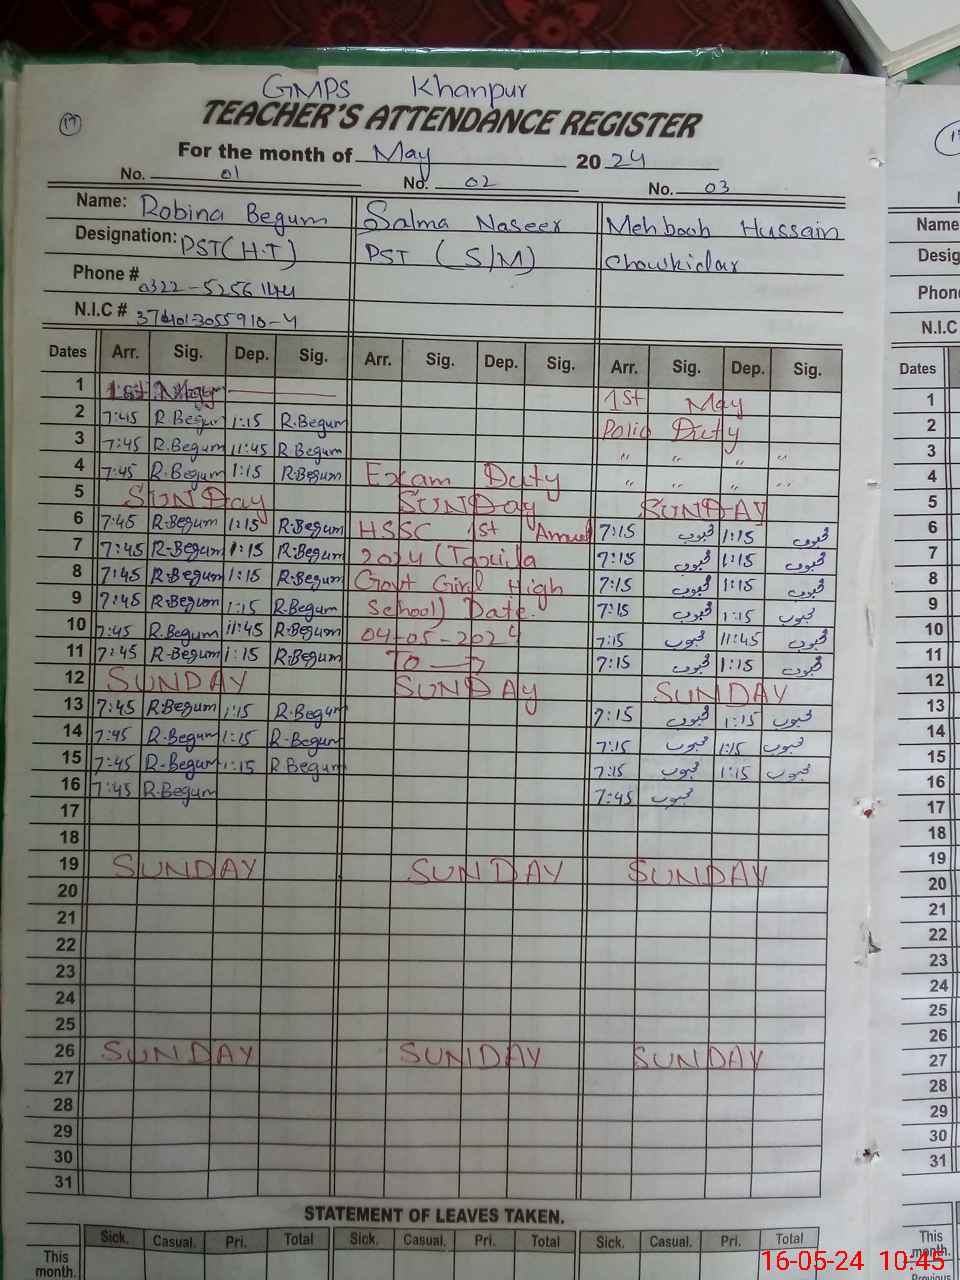 GMPS Khanpur
17
TEACHER'S ATTENDANCE REGISTER
For the month of May 2024
No. 01 No. 02 No. 03
Name: Robina Begum Salma Naseer Mehboob Hussain
Designation: PST (H.T) PST (S/M) Chowkidar
Phone # 0322-5256144
N.I.C #
Dates Arr. Sig. Dep. Sig. Arr. Sig. Dep. Sig. Arr. Sig. Dep. Sig.
1 1st May 1st May
2 7:45 R.Begum 1:15 R.Begum Polio Duty
3 7:45 R.Begum 11:45 R.Begum " " " "
4 7:45 R.Begum 1:15 R.Begum Exam Duty " " " "
5 SUNDay SUNDay SUNDAY
6 7:45 R.Begum 1:15 R.Begum HSSC 1st Annual 7:15 محبوب 1:15 محبوب
7 7:45 R.Begum 1:15 R.Begum 2024 (Taxila 7:15 محبوب 1:15 محبوب
8 7:45 R.Begum 1:15 R.Begum Govt Girl High 7:15 محبوب 1:15 محبوب
9 7:45 R.Begum 1:15 R.Begum School) Date. 7:15 محبوب 1:15 محبوب
10 7:45 R.Begum 11:45 R.Begum 04-05-2024 7:15 محبوب 11:45 محبوب
11 7:45 R.Begum 1:15 R.Begum To → 7:15 محبوب 1:15 محبوب
12 SUNDAY SUNDAy SUNDAY
13 7:45 R.Begum 1:15 R.Begum 7:15 محبوب 1:15 محبوب
14 7:45 R.Begum 1:15 R.Begum 7:15 محبوب 1:15 محبوب
15 7:45 R.Begum 1:15 R.Begum 7:15 محبوب 1:15 محبوب
16 7:45 R.Begum 7:45 محبوب
17
18
19 SUNDAY SUNDAY SUNDAY
20
21
22
23
24
25
26 SUNDAY SUNDAY SUNDAY
27
28
29
30
31
STATEMENT OF LEAVES TAKEN.
Sick. Casual. Pri. Total Sick. Casual. Pri. Total Sick. Casual. Pri. Total
This month.
Name
Desig
Phon
N.I.C
Dates
1
2
3
4
5
6
7
8
9
10
11
12
13
14
15
16
17
18
19
20
21
22
23
24
25
26
27
28
29
30
31
This month.
Previous
16-05-24 10:45